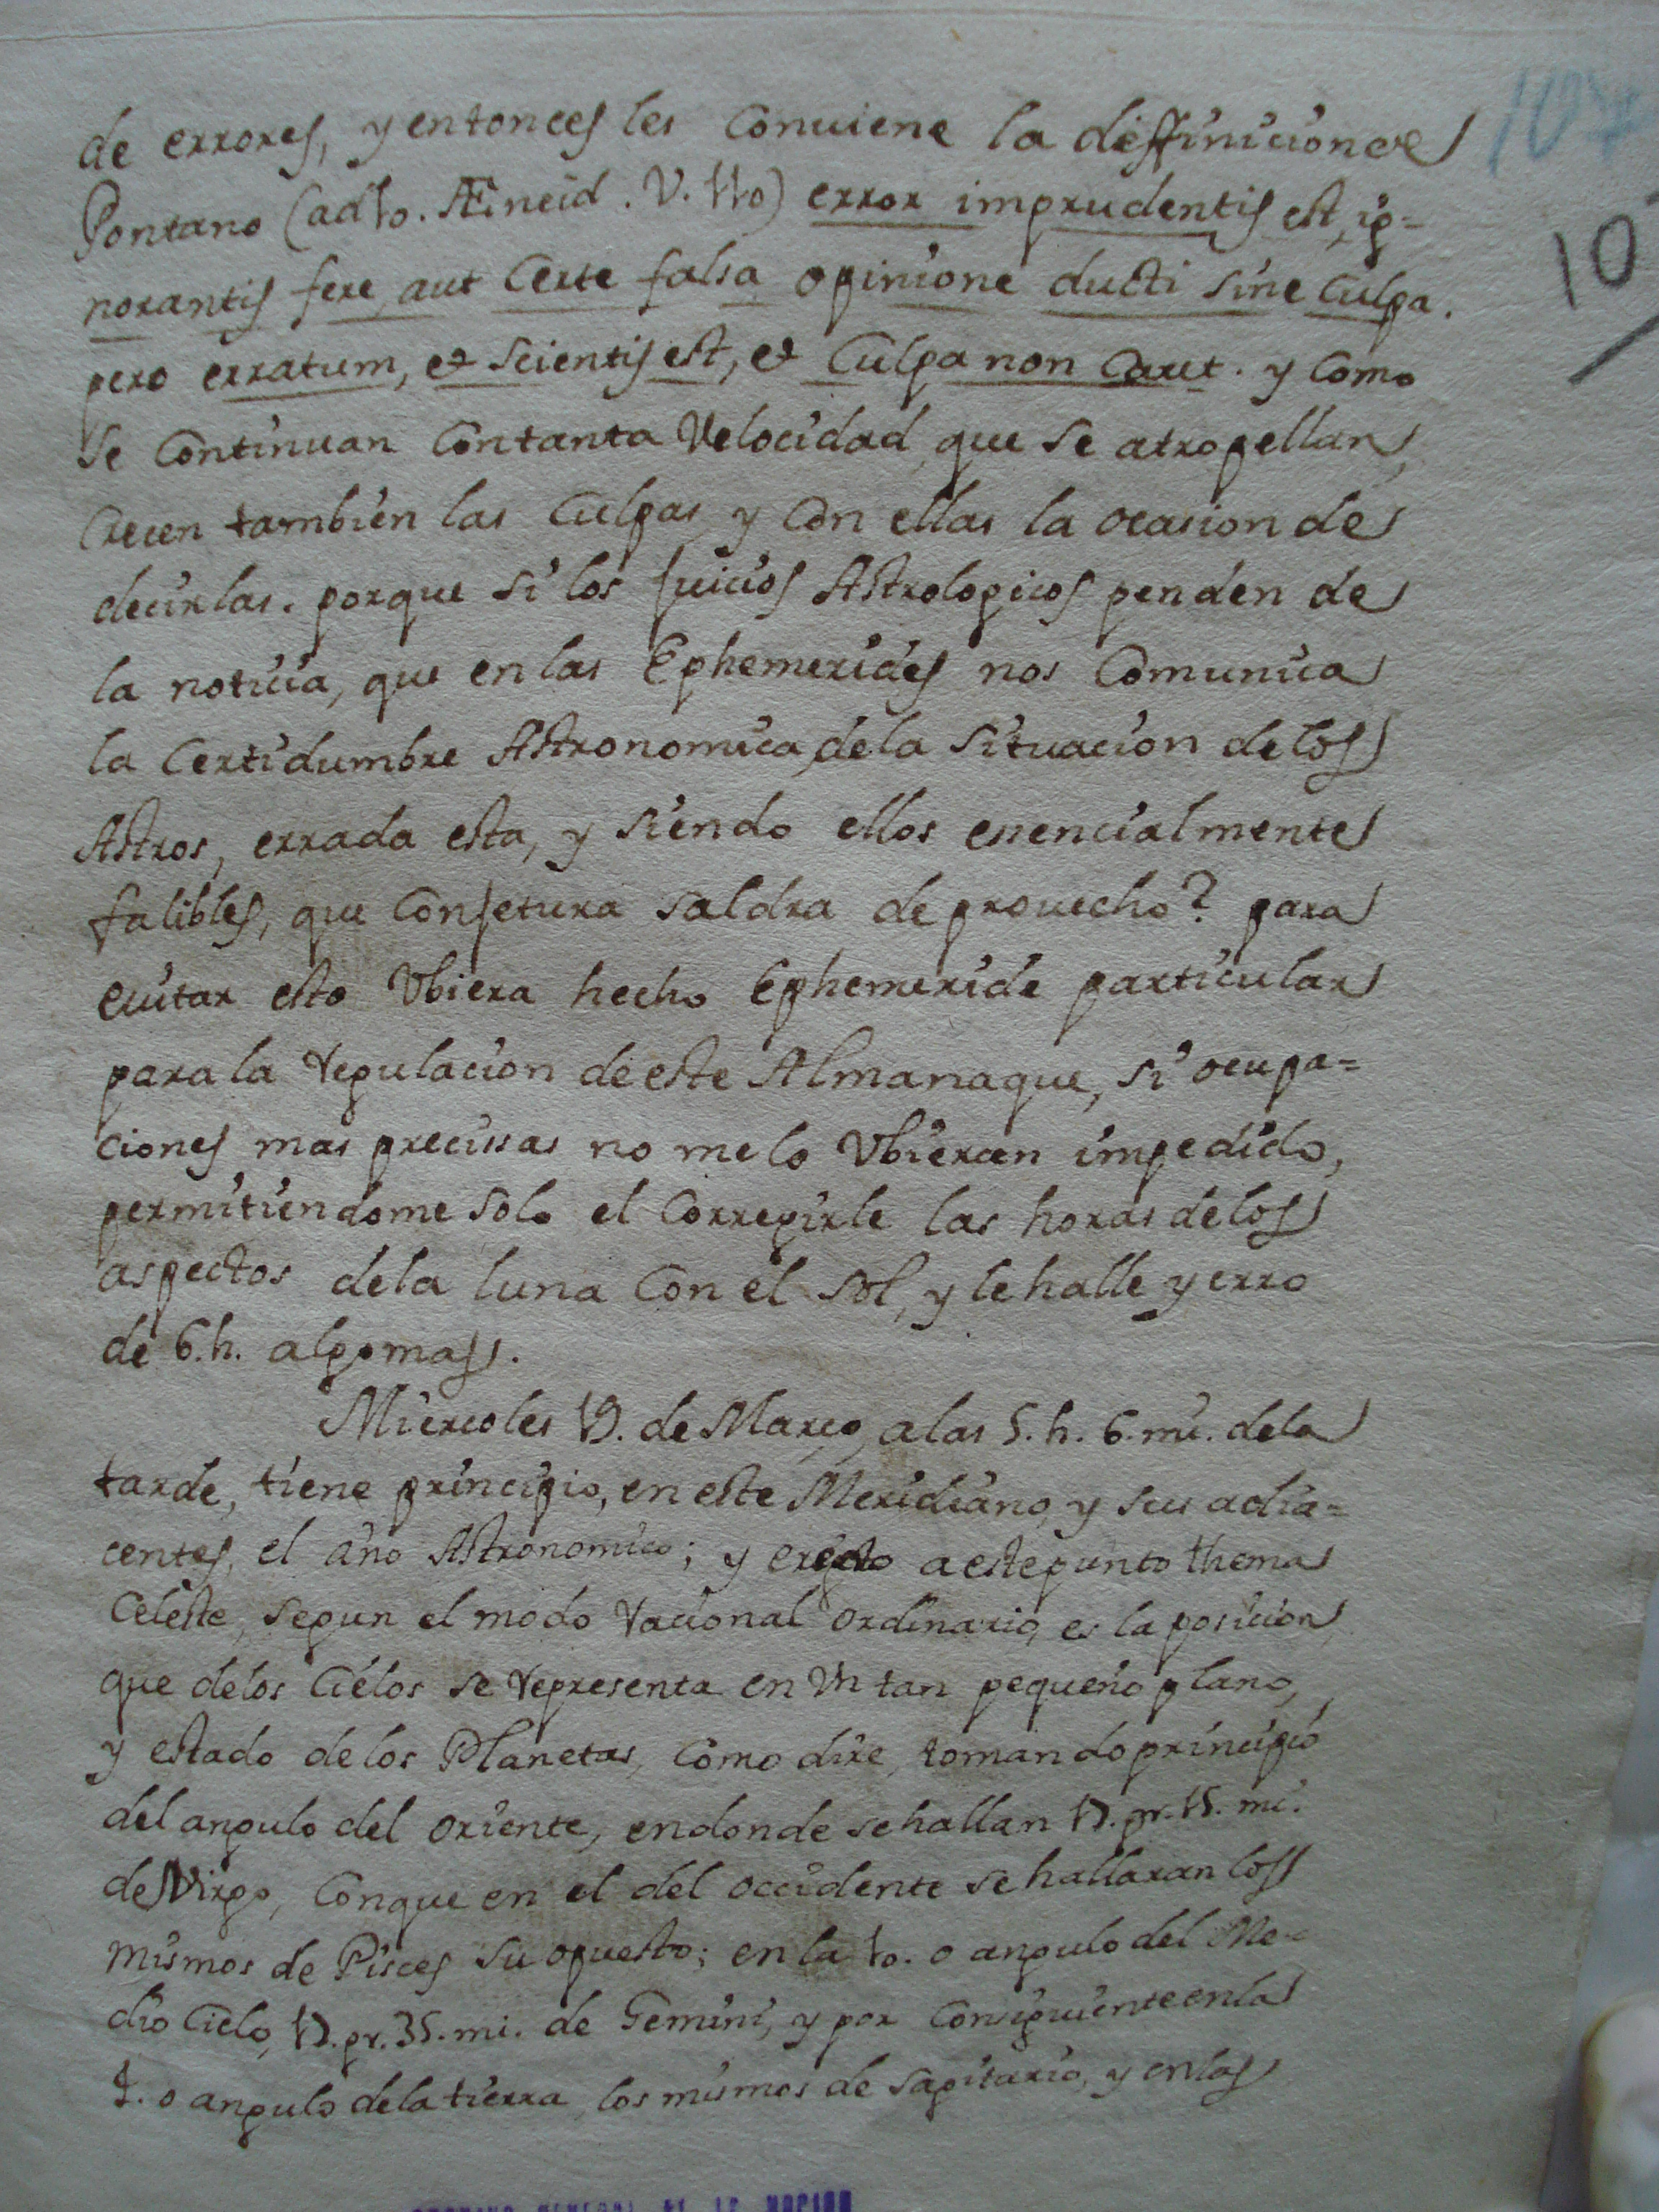 107
10
de errores, y entonces les conuiene la diffinicion de
Pontano (ad 10. Æineid. V. 110) error imprudentis est, ig=
norantis fere, aut certe falsa opinione ducti sine culpa.
pero erratum, et scientis est, et culpa non caret. y como
se continuan con tanta velocidad, que se atropellan,
crecen tambien las culpas, y con ellas la ocasion de
decirlas. porque si los juicios Astrologicos penden de
la noticia, que en las Ephemerides nos comunica
la certidumbre Astronomica, de la situacion de los
Astros, errada esta, y siendo ellos esencialmente
falibles, que conjetura saldra de prouecho? para
euitar esto vbiera hecho Ephemeride particular
para la regulacion de este Almanaque, si ocupa=
ciones mas precissas no me lo vbieran impedido,
permitiendome solo el corregirle las horas de los
aspectos de la luna con el Sol, y le halle yerro
de 6. h. algo mas.
Miercoles 19. de Março, a las 5. h. 6. mi. de la
tarde, tiene principio, en este Meridiano, y sus adia=
centes, el año Astronomico; y erecto a este punto thema
Celeste, segun el modo racional ordinario, es la posicion,
que de los Cielos se representa en vn tan pequeño plano,
y estado de los Planetas, como dire, tomando principio
del angulo del oriente, en donde se hallan 17. gr. 15. mi.
de Virgo, conque en el del occidente se hallaran los
mismos de Pisces su opuesto; en la 10. o angulo del Me=
dio Cielo, 17. gr. 35. mi. de Gemini, y por consiguiente en la
4. o angulo de la tierra, los mismos de Sagitario, y en las